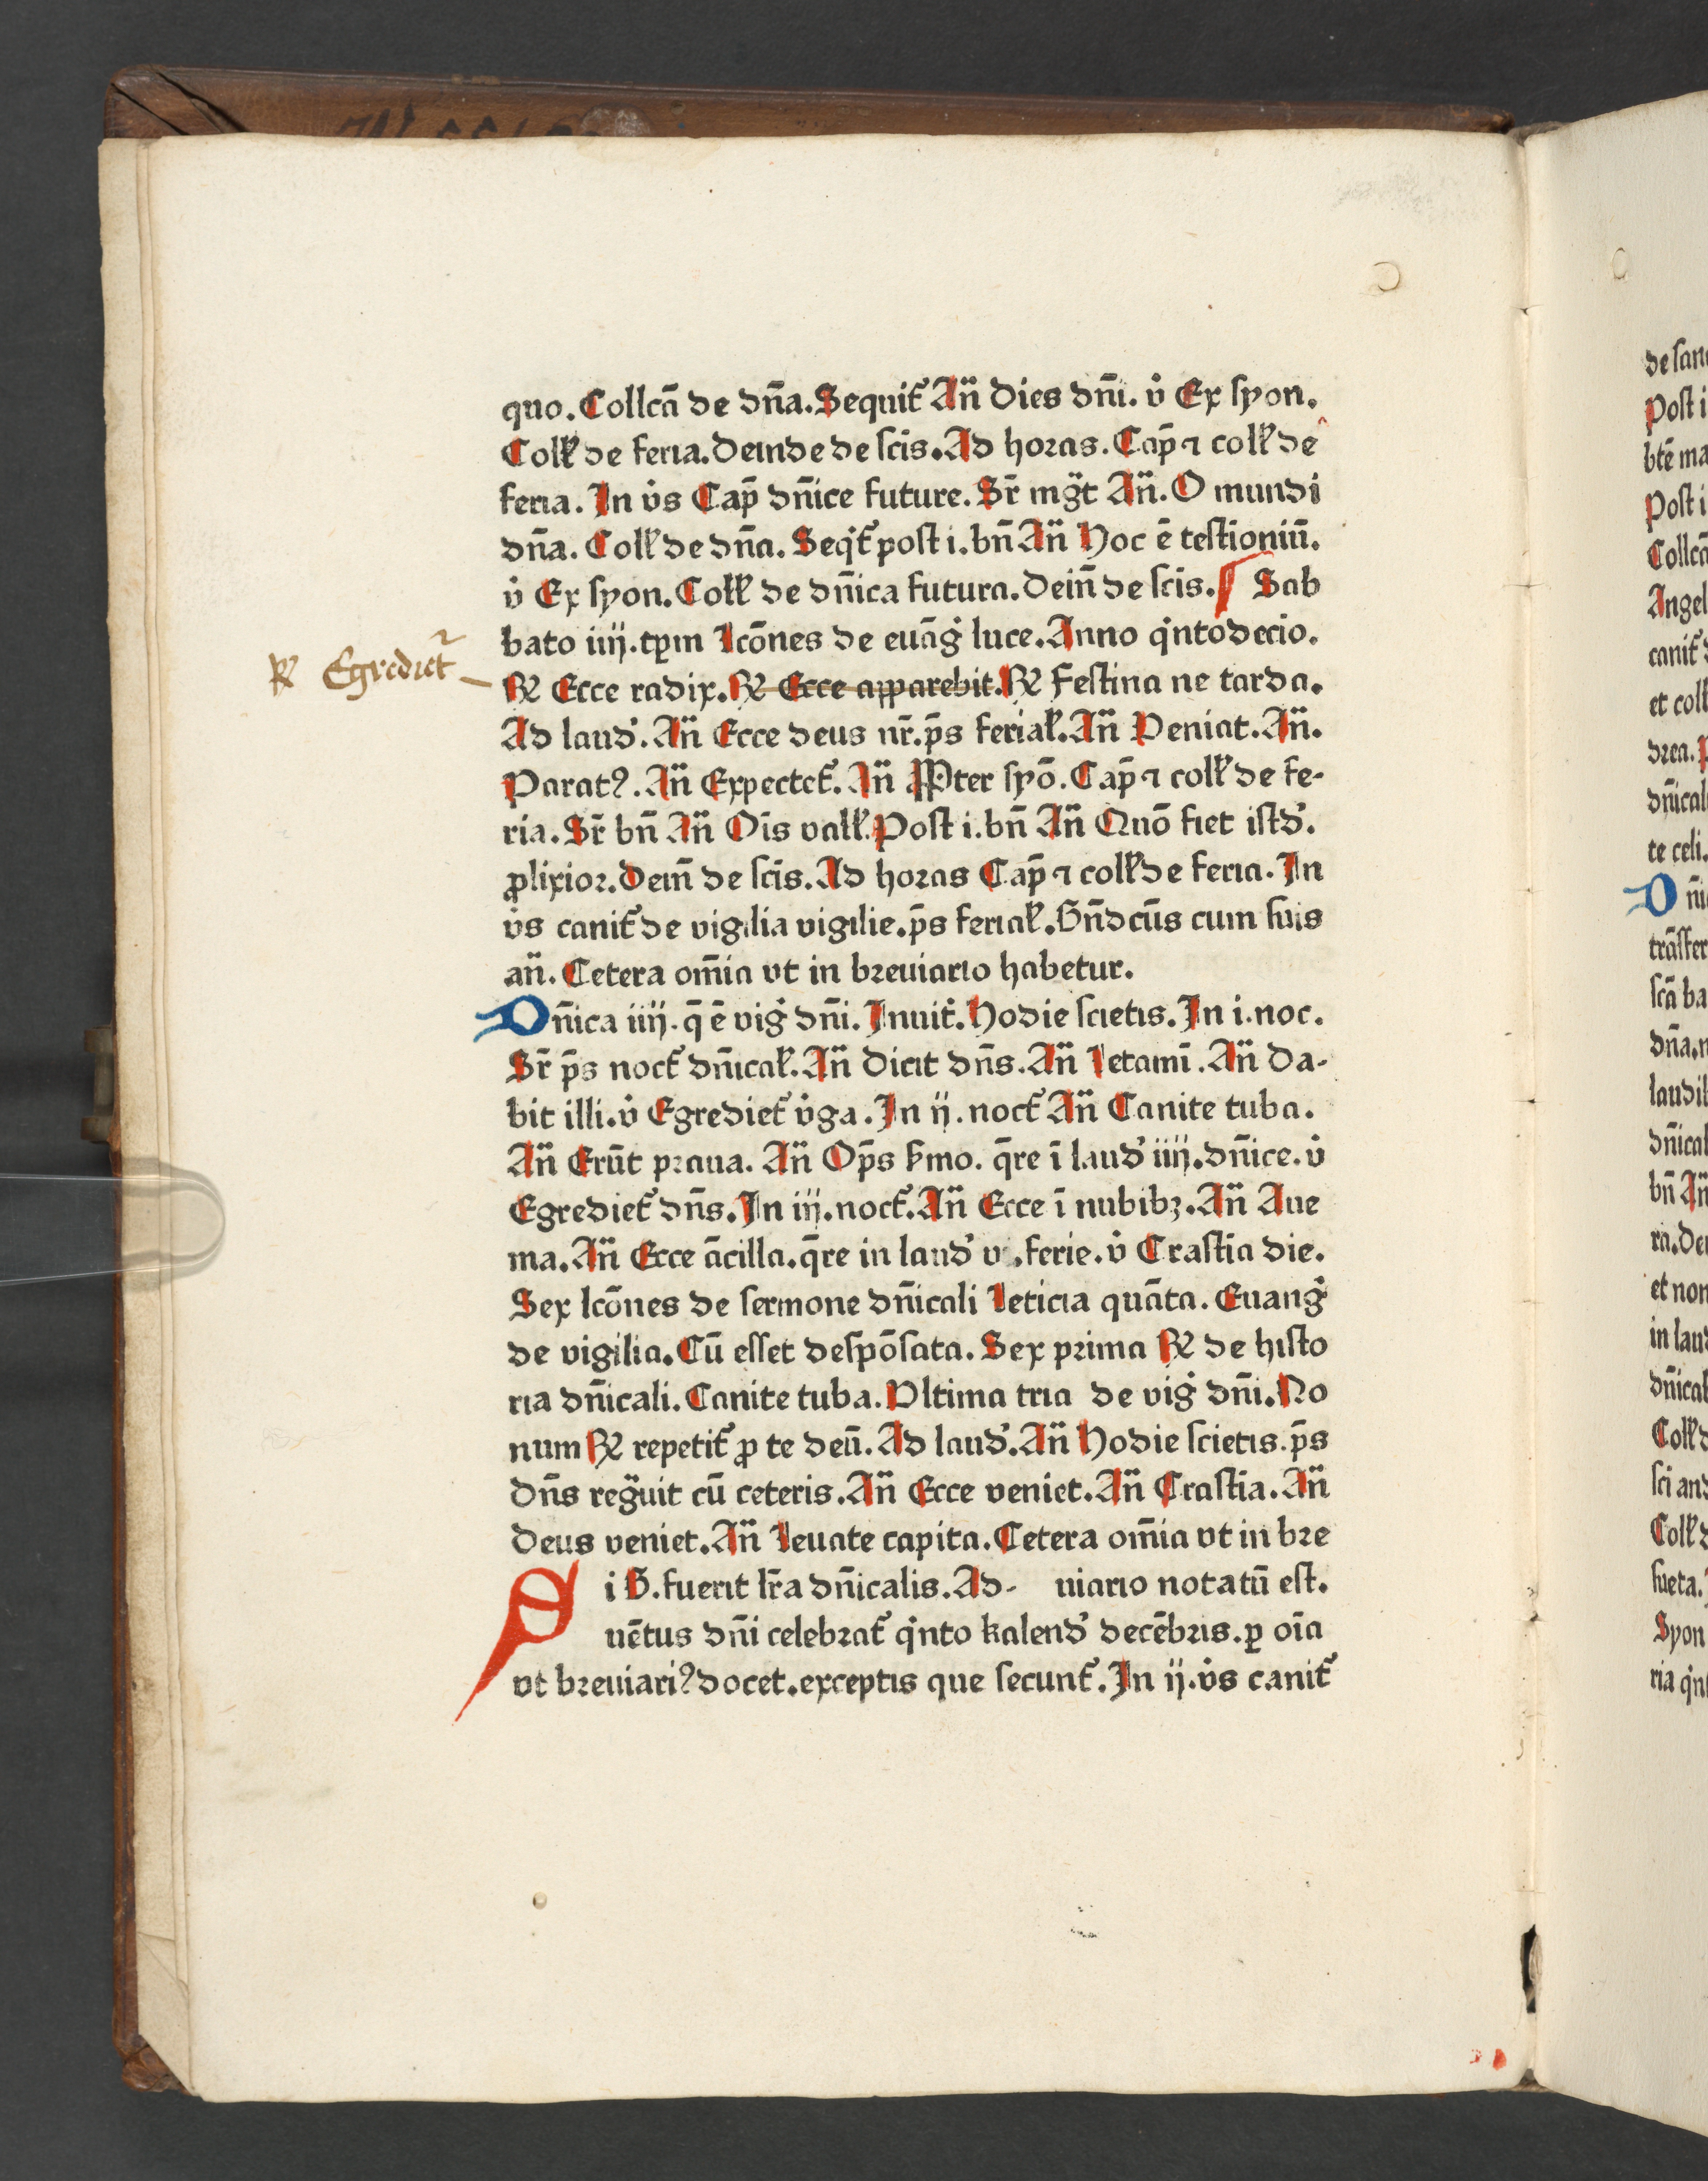 quo. Collcā de dn̄a. Sequit᷑ An̄ Dies dn̄i. v̊ Ex syon.
Coll᷑ de feria. Deinde de scīs. Ad horas. Cap̄ ⁊ coll᷑ de
feria. In v̊s Cap̄ dn̄ice future. Sr̄ mg̃t An̄. O mundi
dn̄a. Coll᷑ de dn̄a. Seqt᷑ post i. bn̄ An̄ Hoc ē testīoniū.
v̊ Ex syon. Coll᷑ de dn̄ica futura. Dein̄ de scīs. Sab
bato iiij. tp̄m lcōnes de euāg̊ luce. Anno q̇ntodecīo.
℟ Egrediet᷑
℟ Ecce radix. ℟ Ecce apparebit. ℟ Festina ne tarda.
Ad laud᷑. An̄ Ecce deus nr̄. p̄s ferial᷑. An̄ Veniat. An̄.
Parat⁹. An̄ Expectet᷑. An̄ Pꝓter syō. Cap̄ ⁊ coll᷑ de fe-
ria. Sr̄ bn̄ An̄ Oīs vall᷑. Post i. bn̄ An̄ Quō fiet istd᷑.
ꝓlixior. Dein̄ de scīs. Ad horas Cap̄ ⁊ coll᷑ de feria. In
v̊s canit᷑ de vigilia vigilie. p̄s ferial᷑. Bn̄dcūs cum suis
an̄. Cetera om̄ia vt in breuiario habetur.
Dn̄ica iiij. q̄ ē vig̊ dn̄i. Inuit᷑. Hodie scietis. In i. noc.
Sr̄ p̄s noct᷑ dn̄ical᷑. An̄ Dicit dn̄s. An̄ Letamī. An̄ Da-
bit illi. v̊ Egrediet᷑ v̊ga. In ij. noct᷑ An̄ Canite tuba.
An̄ Erūt praua. An̄ Op̄s s᷑mo. q̄re ī laud᷑ iiij. dn̄ice. v̊
Egrediet᷑ dn̄s. In iij. noct᷑. An̄ Ecce ī nubibꝫ. An̄ Aue
ma. An̄ Ecce ācilla. q̄re in laud᷑ v. ferie. v̊ Crastīa die.
Sex lcōnes de sermone dn̄icali Leticia quāta. Euang̊
de vigilia. Cū esset despōsata. Sex prima ℟ de histo
ria dn̄icali. Canite tuba. Vltima tria de vig̊ dn̄i. No
num ℟ repetit᷑ ꝓ te deū. Ad laud᷑. An̄ Hodie scietis. p̄s
Dn̄s reg̃uit cū ceteris. An̄ Ecce veniet. An̄ Crastīa. An̄
Deus veniet. An̄ Leuate capita. Cetera om̄ia vt in bre
Si B. fuerit lr̄a dn̄icalis. Ad- uiario notatū est.
uētus dn̄i celebrat᷑ q̇nto kalend᷑ decēbris. ꝑ oīa
vt breuiari⁹ docet. exceptis que secunt᷑. In ij. v̊s canit᷑